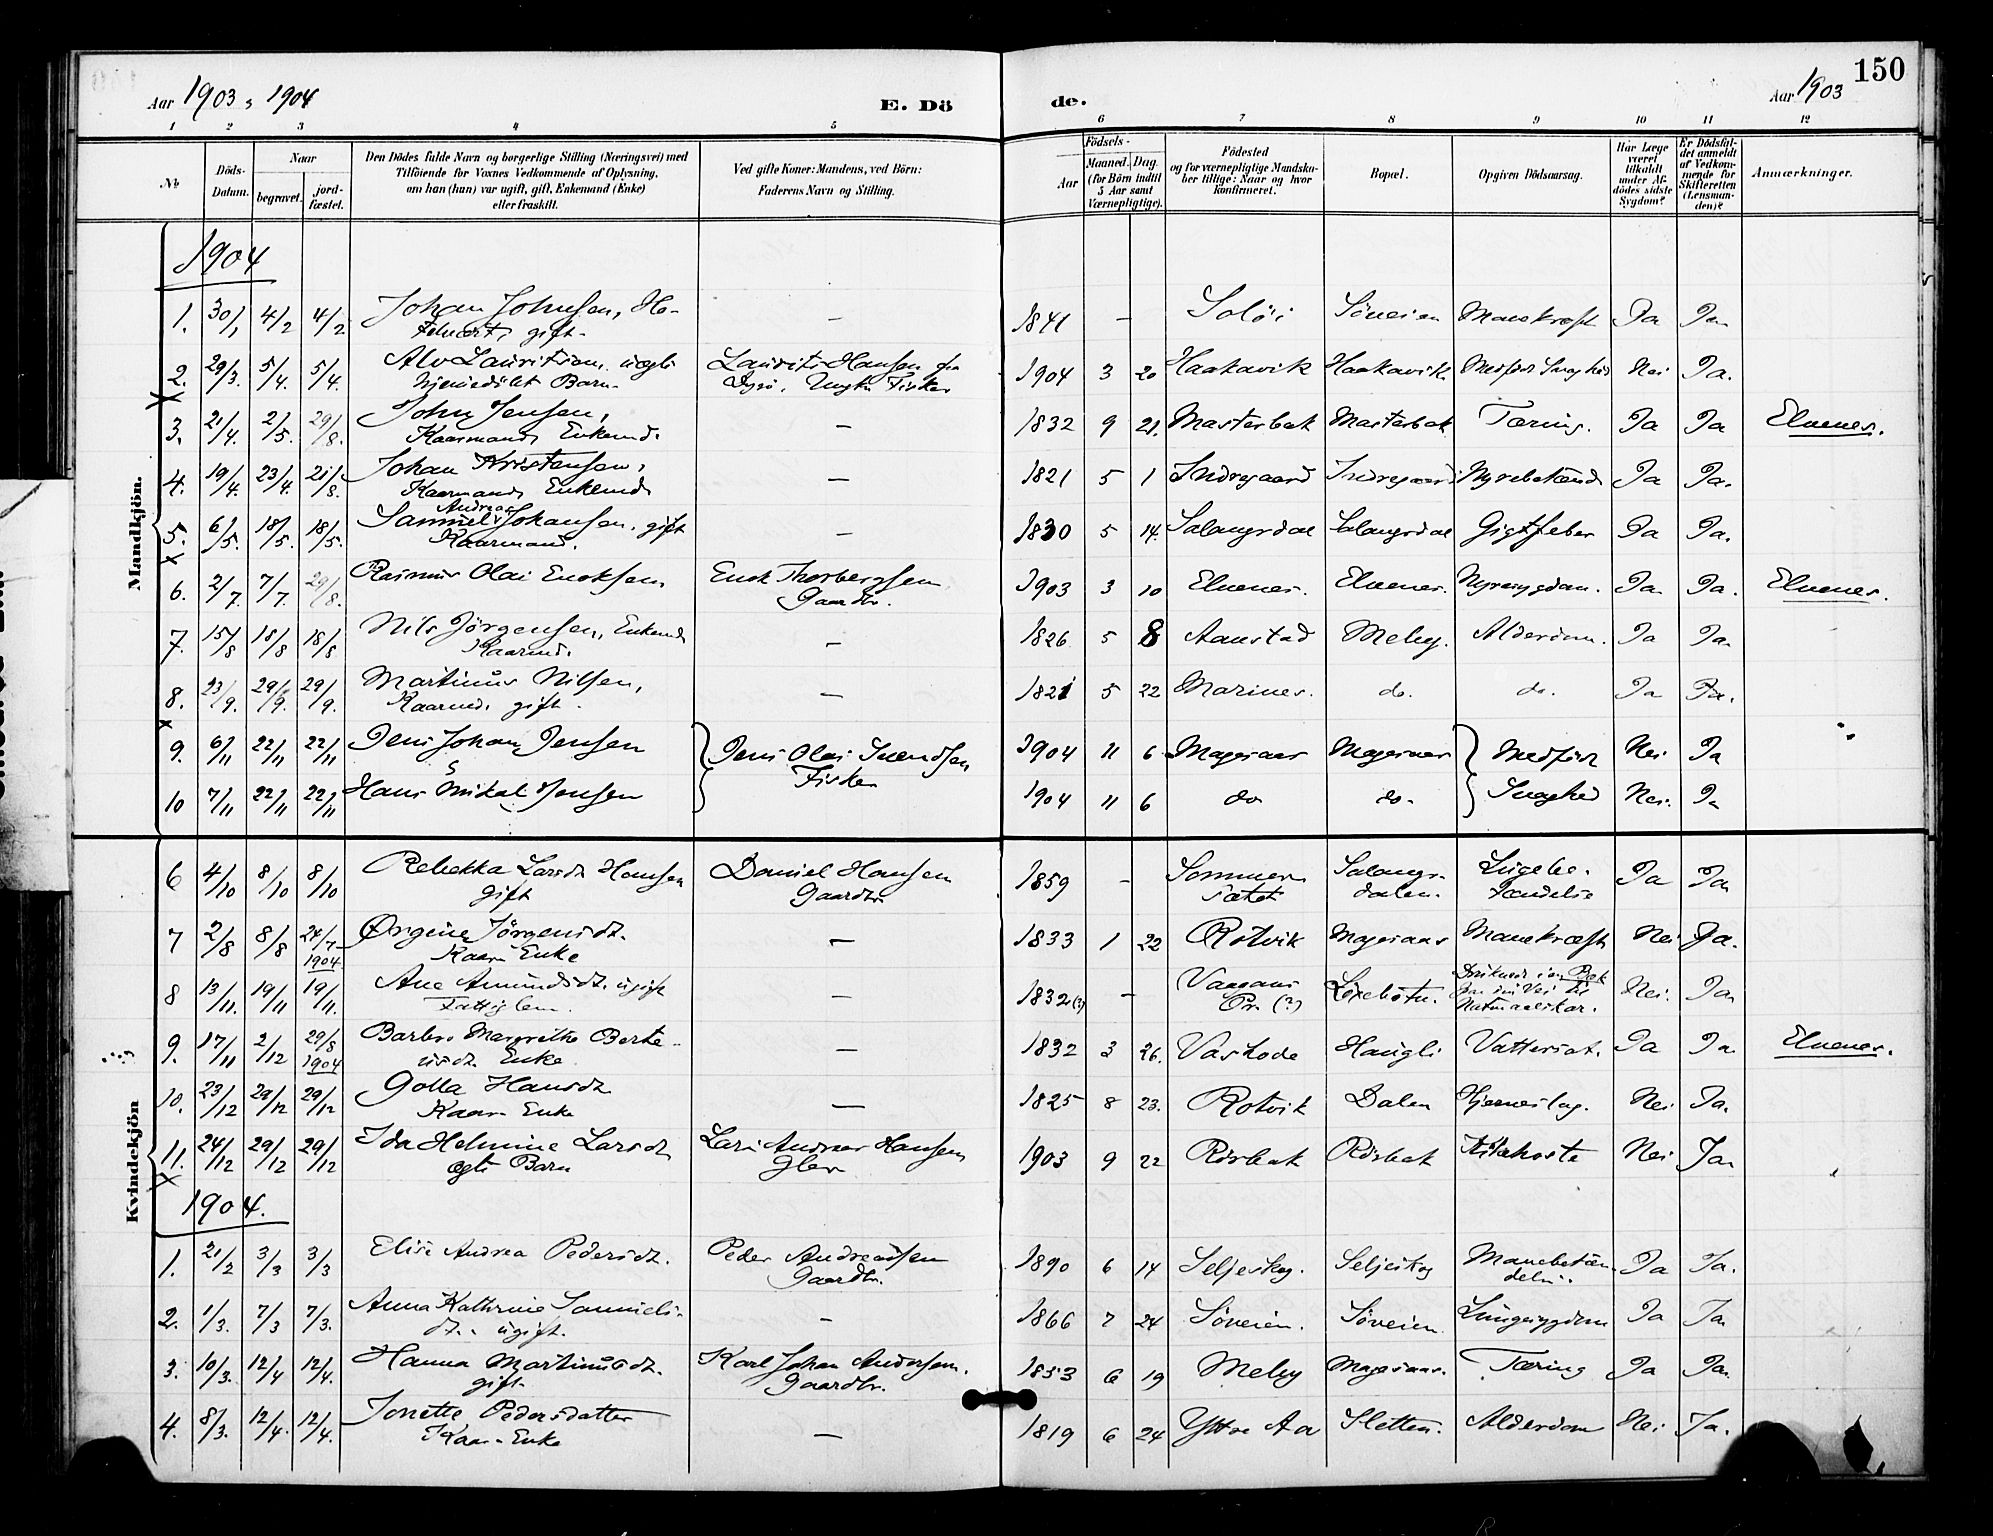 150
Aar 1903 & 1904
E. Dö
de.
Aar 1903
1 2 3 4 5 6 7 8 9 10 11 12
No
Döds-Datum.
Naar
begravet.
jord-fæstet.
Den Dödes fulde Navn og borgerlige Stilling (Næringsvei) med
Tilföiende for Voxnes Vedkommende af Oplysning,
om han (hun) var ugift, gift, Enkemand (Enke)
eller fraskilt.
Ved gifte Koner: Mandens, ved Börn:
Faderens Navn og Stilling.
Födsels-
Aar
Maaned. Dag.
(for Börn indtil
5 Aar samt
Værnepligtige).
Födested
og for værnepligtige Mandska-
ber tillige: Naar og hvor
konfirmeret.
Bopæl.
Opgiven Dödsaarsag.
Har Læge
været
tilkaldt
under Af-
dödes sidste
Sygdom?
Er Dödsfal-
det anmeldt
af Vedkom-
mende for
Skifteretten
(Lensman-
den)?
Anmærkninger.
Mandkjön.
1904
1. 30/1 4/2 4/2 Johan Johnsen, gift - — 1841 — Soløi Søveien Mavekræft Ja Ja
2. 29/3. 5/4. 5/4. Alv Lauritsen uægte hjemmedøbt Barn Laurits Hansen fra Ungk. Fisker 1904 3 20 Haakavik Haakavik Medfødt Svaghed Nei Ja.
3. 21/4. 2/5. 29/8. John Jensen, Kaarmand, Enkemd. — 1832 9 21. Masterbak Masterbak Tæring. Ja Ja Elvenes.
4. 19/4. 23/4. 21/8. Johan Kristensen, Kaarmand, Enkemd. — 1821 5 1 Indregaard Indregaard Nyrebetænd Ja Ja.
5. 6/5. 18/5. 18/5. Samuel Andreas Johansen, gift Kaarmand. — 1830 5 14. Salangsdal Salangsdal Gigtfeber Ja Ja.
6. 2/7. 7/7. 29/8. Rasmus Olai Enoksen Enok Thorbergsen Gaardbr. 1903 3 10 Elvenes. Elvenes. Nyresygdom. Ja Ja. Elvenes.
7. 15/8 18/8 18/8 Nils Jørgensen, Enkemd. Kaarmd. — 1826 5 8 Aanstad Melby. Alderdom. Ja Ja.
8. 23/9. 29/9. 29/9. Martinus Nilsen, Kaarmd. gift. — 1821 5 22 Marines. do. do. Ja Ja.
9. 6/11 22/11 22/11 Jens Johan Jensen Jens Olai Svendsen Fisker 1904 11 6 Magesaas Magesaas Medfødt Nei Ja
10 7/11 22/11 22/11 Hans Mikal Jensen 1904 11 6 do do. Svaghed Nei. Ja
Kvindekjön
6 4/10 8/10 8/10 Rebekka Larsdt. Hansen gift Daniel Hansen Gaardbr. 1859 — Sommersætet Salangsdalen. Lungebetændelse Ja Ja
7 2/8 8/8 24/7 1904. Ørgine Jørgensdt. Kaar Enke — 1833 1 22 Rotvik Magesaas Mavekræft Nei Ja.
8 13/11. 19/11 19/11. Ane Amundsdt. ugift Fattiglem. — 1832(?) — Vaagans Pr. (?) Løxebotn. Druknede i en Bæk paa sin Vei til Nei. Ja
9. 17/11 2/12 29/8 1904 Barbro Margrethe Berteusdt. Enke — 1832 3 26. Haugli Vattersot. Ja Ja Elvenes.
10. 23/12 29/12 29/12 Golla Hansdt. Kaar Enke — 1825 8 23. Rotvik Dalen Hjerneslag. Nei Ja.
11. 24/12 29/12 29/12 Ida Helmine Larsdt. ægte Barn Lars Andreas Hansen 1903 9 22 Rørbak Rørbak Kikhoste Nei Ja
1904.
1. 21/2 3/3 3/3 Elise Andrea Pedersdt. Peder Andreassen Gaardbr. 1890 6 14 Seljeskog. Seljeskog Mavebetændelse. Ja Ja.
2. 1/3. 7/3 7/3. Anna Kathrine Samuelsdt., ugift. — 1866 7 24 Søveien. Søveien. Lungesygdom Ja Ja
3. 10/3. 12/4 12/4. Hanna Martinusdt. gift. Karl Johan Andersen. Gaardbr. 1853 6 19 Melby Magesaas. Tæring Ja Ja.
4. 8/3. 12/4. 12/4. Jonette Pedersdatter Kaar-Enke — 1819 6 24 Yttre Aa Sletten. Alderdom Nei Ja.